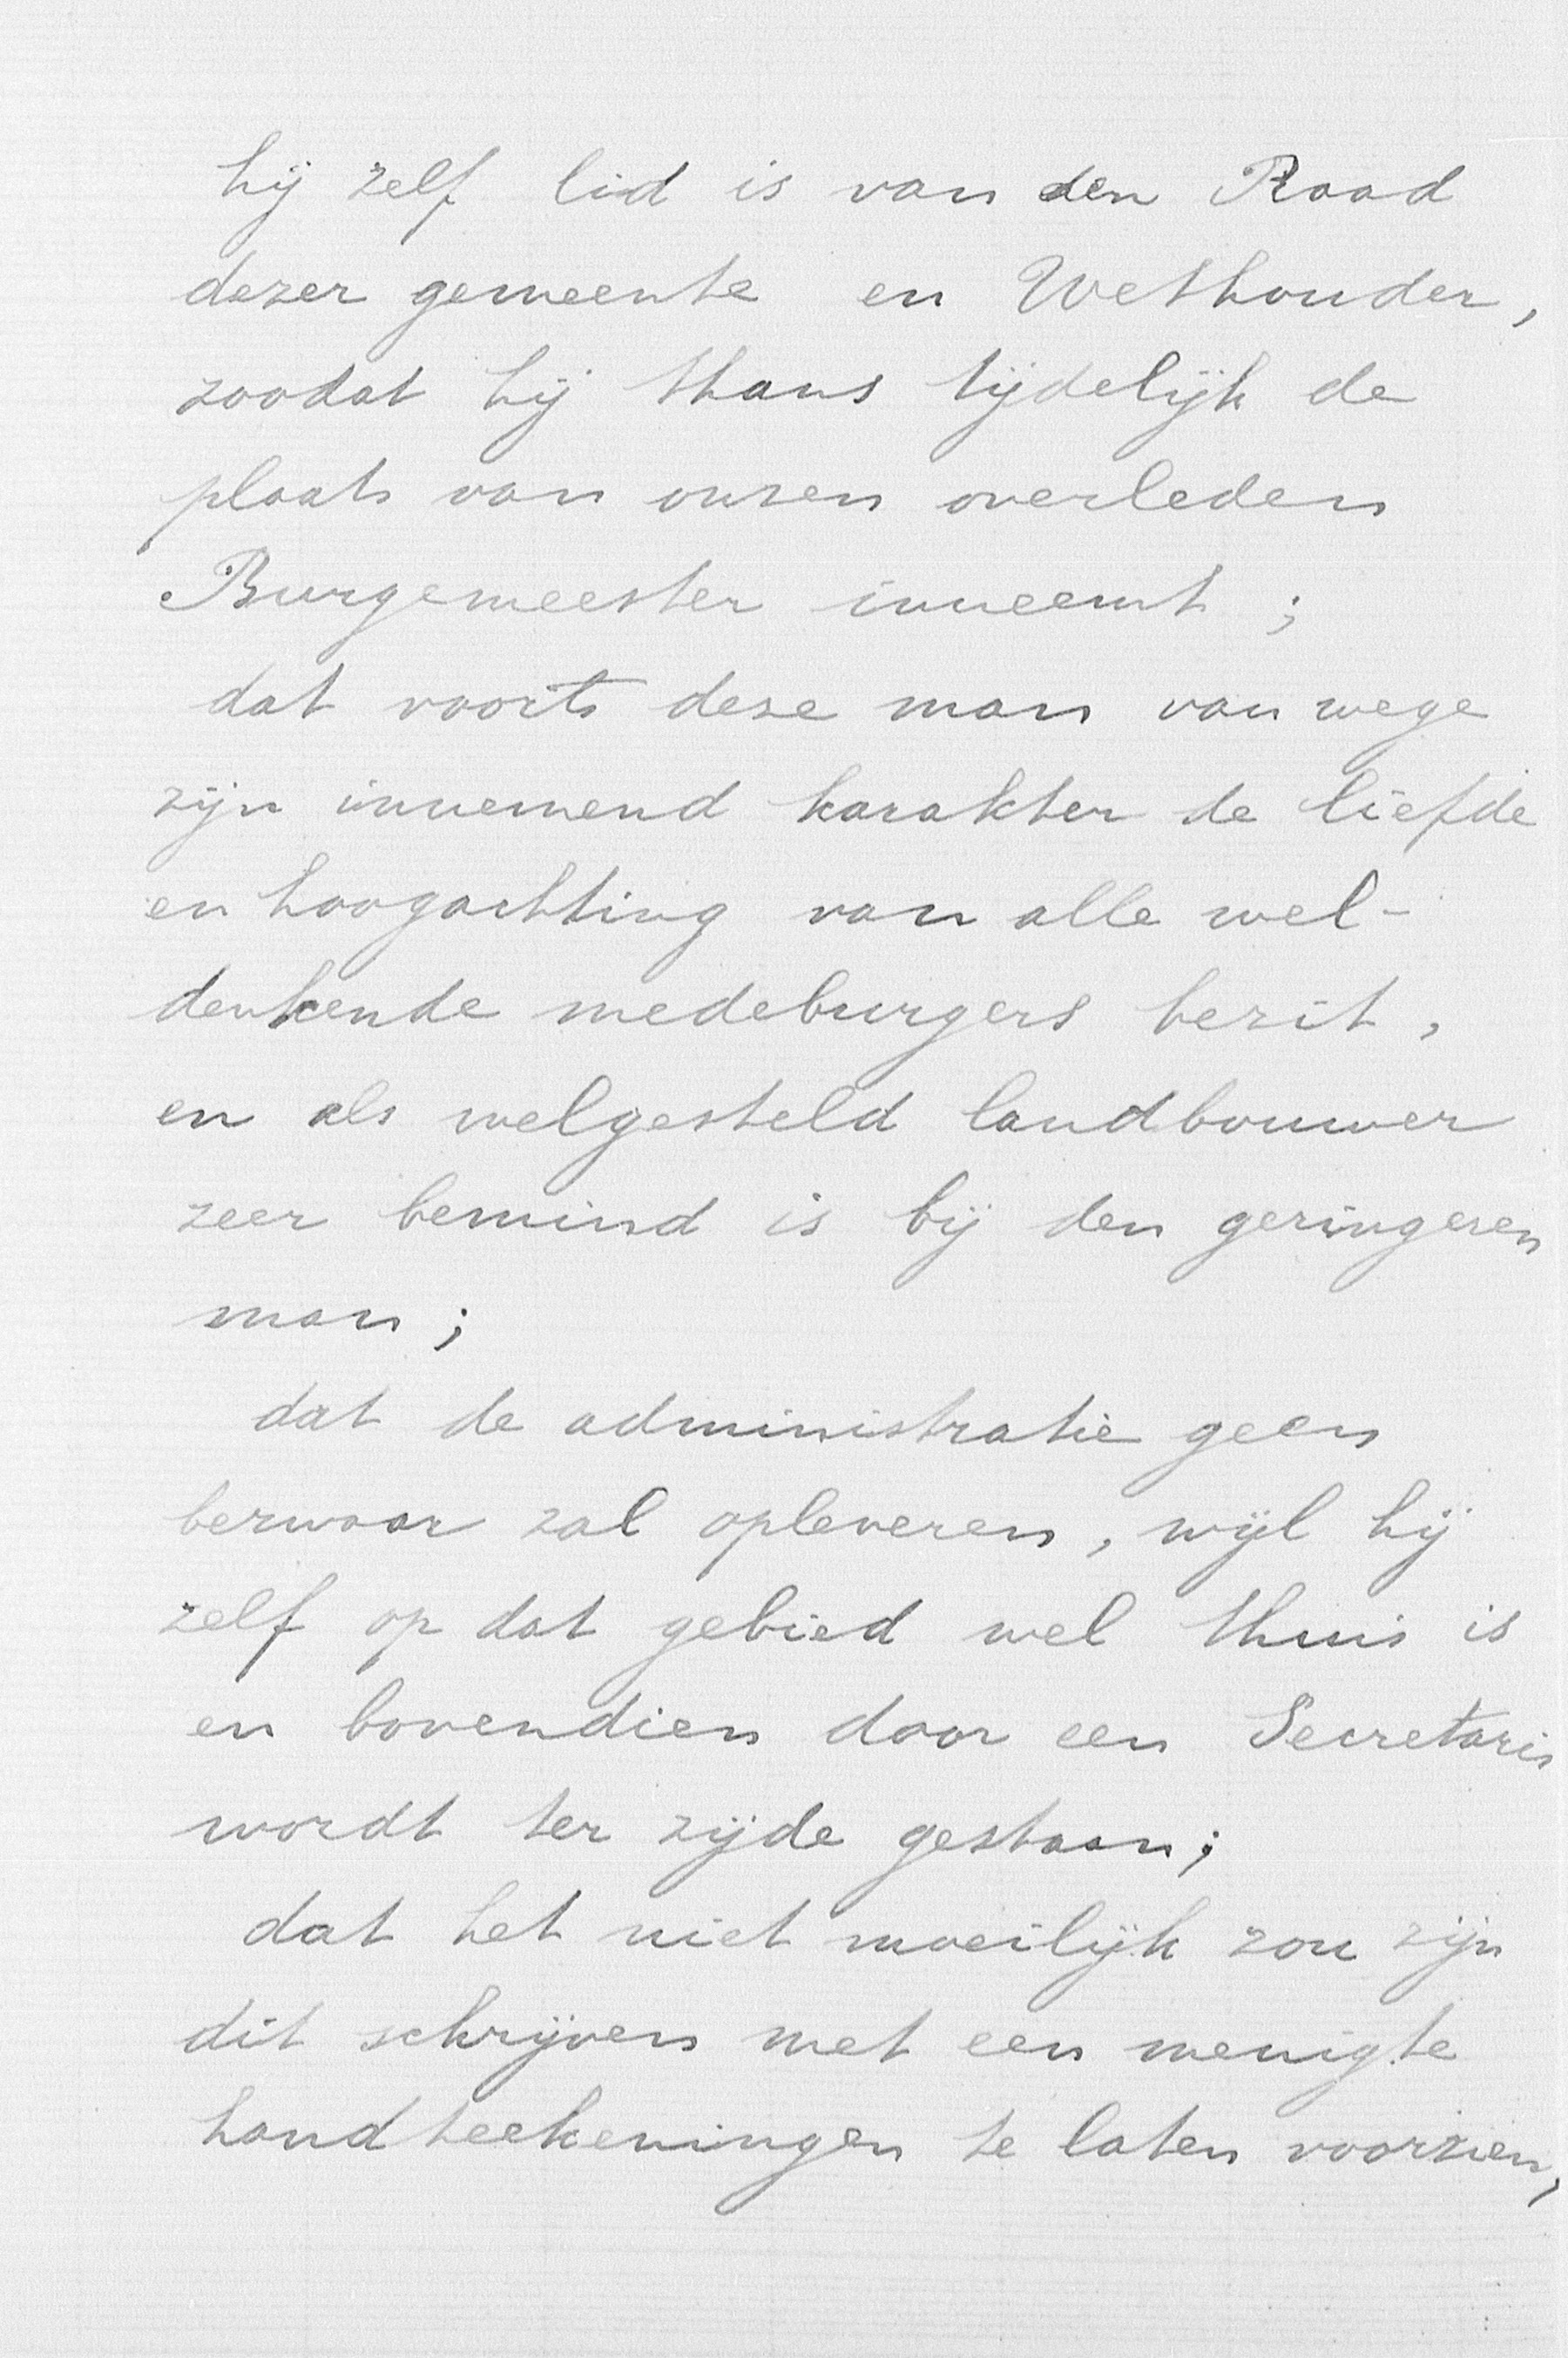 hij zelf lid is van den Raad
dezer gemeente en Wethouder,
zoodat hij thans tijdelijk de
plaats van onzen overleden
Burgemeester inneemt ;
dat voorts deze man van wege
zijn innemend karakter de liefde
en hoogachting van alle wel-
denkende medeburgers bezit ,
en als welgesteld landbouwer
zeer bemind is bij den geringeren
man ;
dat de administratie geen
bezwaar zal opleveren , wijl hij
zelf op dat gebied wel thuis is
en bovendien door een Secretaris
wordt ter zijde gestaan ;
dat het niet moeilijk zou zijn
dit schrijven met een menigte
handteekeningen te laten voorzien,